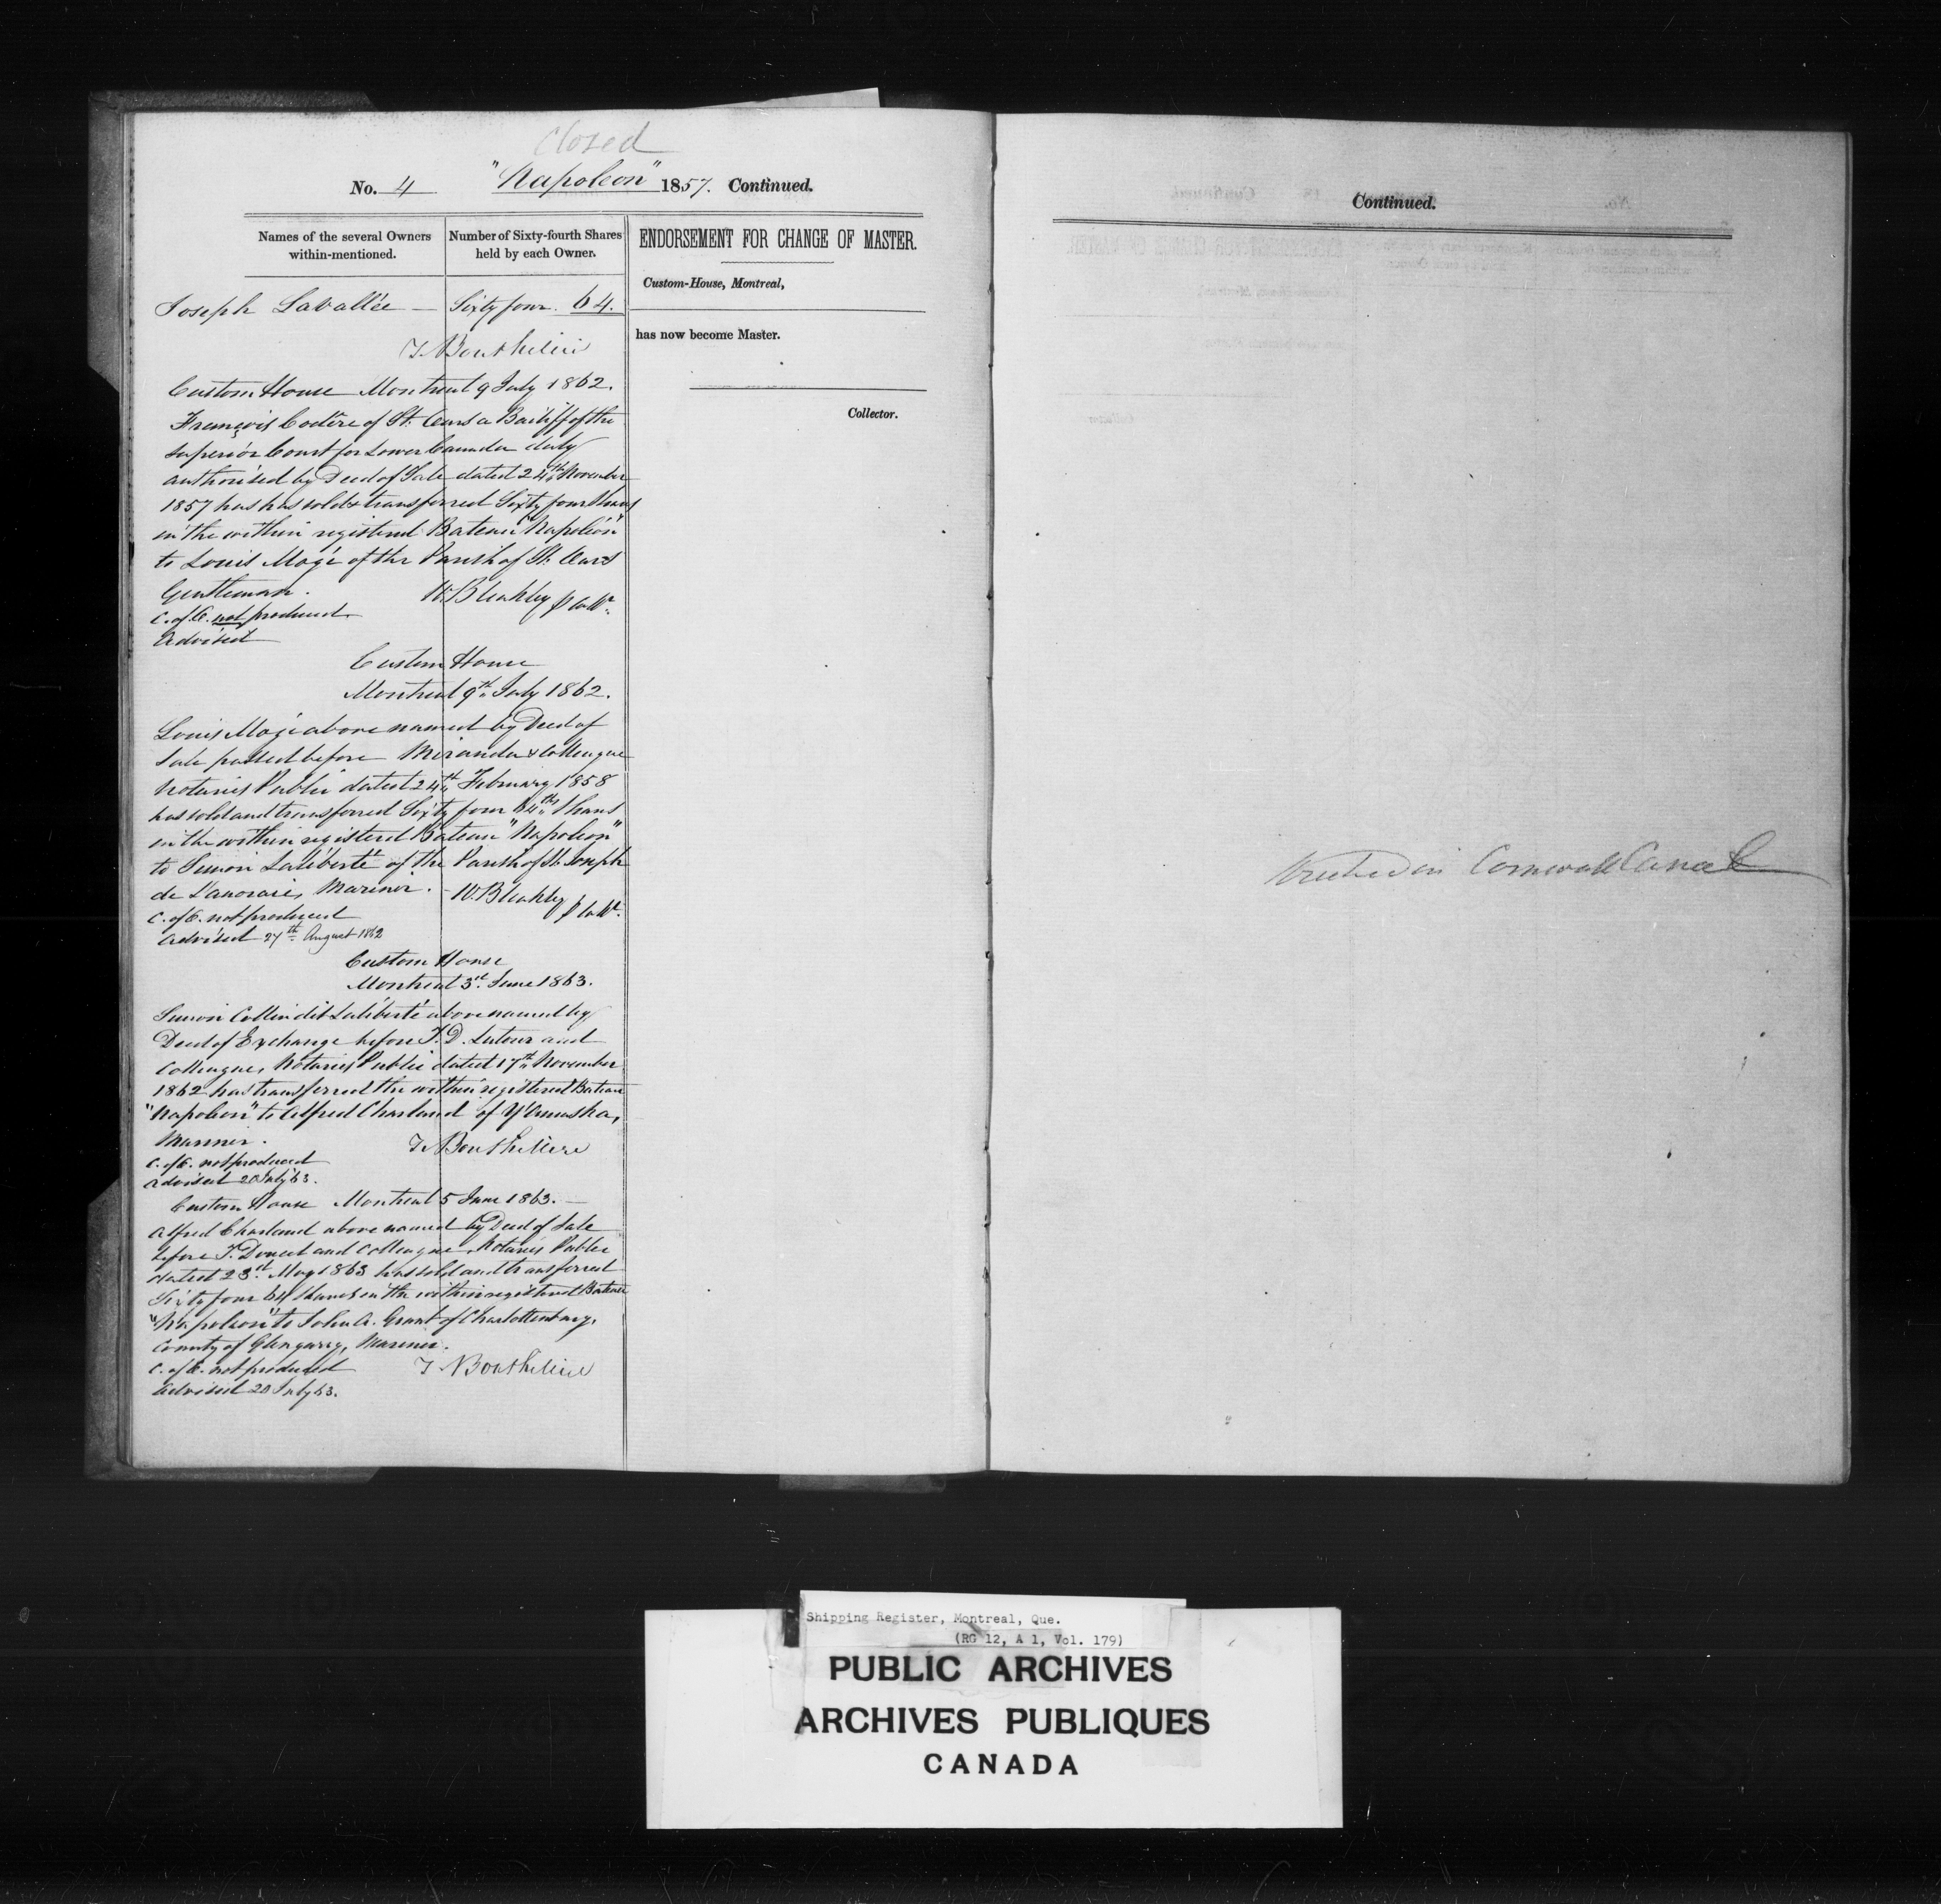 Closed
No. 4 "Napoleon" 1857. Continued.
Names of the several Owners within-mentioned.
Number of Sixty-fourth Shares held by each Owner.
Joseph Lavallée — Sixty four. 64.
T. Bouthillier
Custom House Montreal 9 July 1862.
François Codère of St. Ours a Bailiff of the
Superior Court for Lower Canada duly
authorised by Deed of Sale dated 24th November
1857 has has sold & transferred Sixty four Shares
in the within registered Bateau "Napoléon"
to Louis Mogé of the Parish of St. Ours
Gentleman.
W. Bleakley p Collr.
C. of E. not produced
Advised
Custom House
Montreal 9th July 1862.
Louis Mogé above named by Deed of
Sale passed before Miranda & Colleague
Notaries Public dated 24th February 1858
has sold and transferred Sixty four 64ths Shares
in the within registered Bateau "Napoleon"
to Simon Laliberté of the Parish of St. Joseph
de Lanoraie, Mariner. - W. Bleakley p Collr.
C. of E. not produced
Advised 27th August 1862
Custom House
Montreal 3rd June 1863.
Simon Collin dit Laliberté above named by
Deed of Exchange before T. D. Latour and
Colleague, Notaries Public dated 17th November
1862 has transferred the within registered Bateau
"Napoleon" to Alfred Charland of Yamaska,
Mariner.
T. Bouthillier
C. of E. not produced
Advised 20 July 63.
Custom House Montreal 5 June 1863. —
Alfred Charland above named by Deed of Sale
before T. Doucet and Colleague, Notaries Public
dated 23rd May 1863 has sold and transferred
Sixty four 64 Shares in the within registered Bateau
"Napoleon" to John A. Grant of Charlottenburg,
County of Glengarry, Mariner.
C. of E. not produced
T. Bouthillier
Advised 20 July 63.
ENDORSEMENT FOR CHANGE OF MASTER.
Custom-House, Montreal,
has now become Master.
Collector.
Continued.
Wrecked in Cornwall Canal
Shipping Register, Montreal, Que.
(RG 12, A 1, Vol. 179)
PUBLIC ARCHIVES
ARCHIVES PUBLIQUES
CANADA